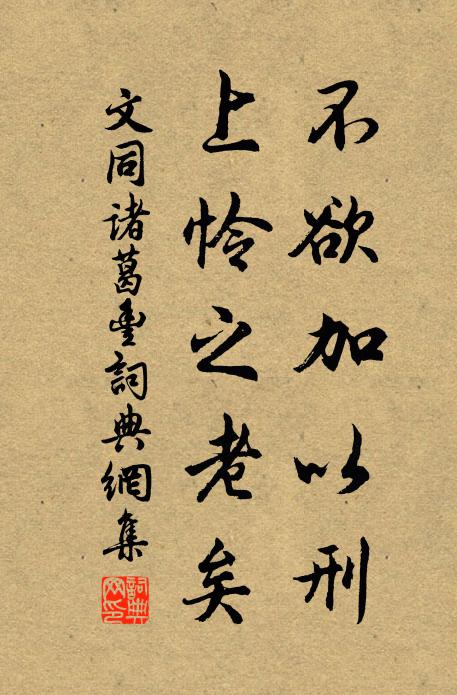 不欲加以刑
上怜之老矣
文同诸葛豊詞典網集
詞典網印